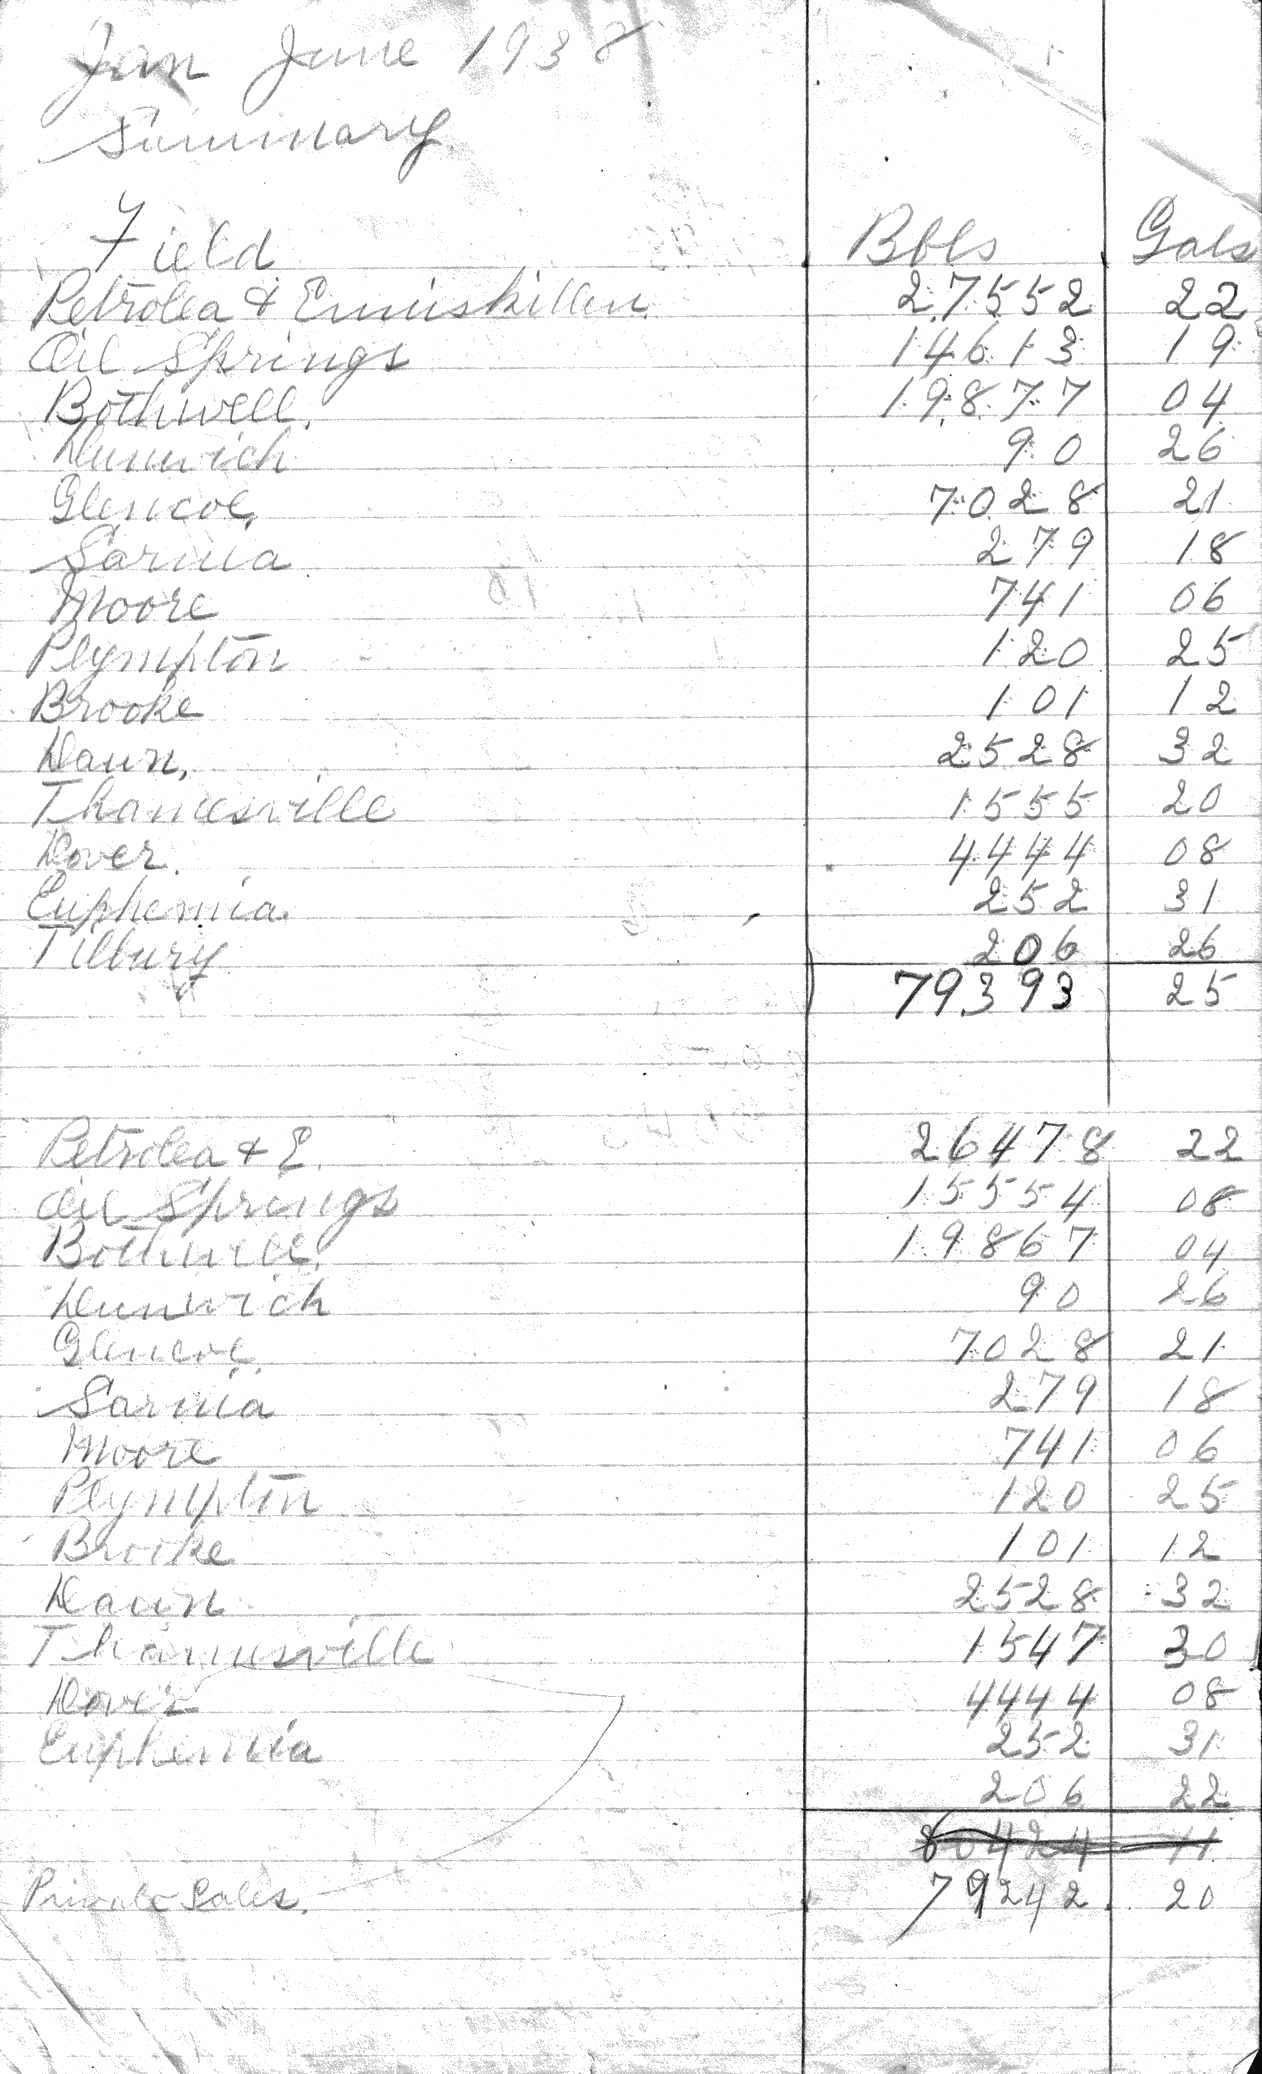 Jan June 1938
Summary
Field Bbls Gals
Petrolea & Enniskillen 27552 22
Oil Springs 14613 19
Bothwell. 19877 04
Dunwich 90 26
Glencoe, 7028 21
Sarnia 279 18
Moore 741 06
Plympton 120 25
Brooke 101 12
Dawn, 2528 32
Thamesville 1555 20
Dover. 4444 08
Euphemia. 252 31
Tilbury 206 26
79393 25
Petrolea & E. 26478 22
Oil Springs 15554 08
Bothwell. 19867 04
Dunwich 90 26
Glencoe 7028 21
Sarnia 279 18
Moore 741 06
Plympton 120 25
Brooke 101 12
Dawn 2528 32
Thamesville 1547 30
Dover 4444 08
Euphemia 252 31
206 22
80424 11
Private Sales. 79242 20